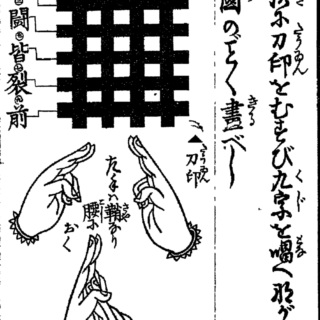 に刀印をむすび九字を唱へ那が
圖のごとく畫べし
鬪
皆
裂
前
刀印
左手ハ鞘なり
腰に
おく